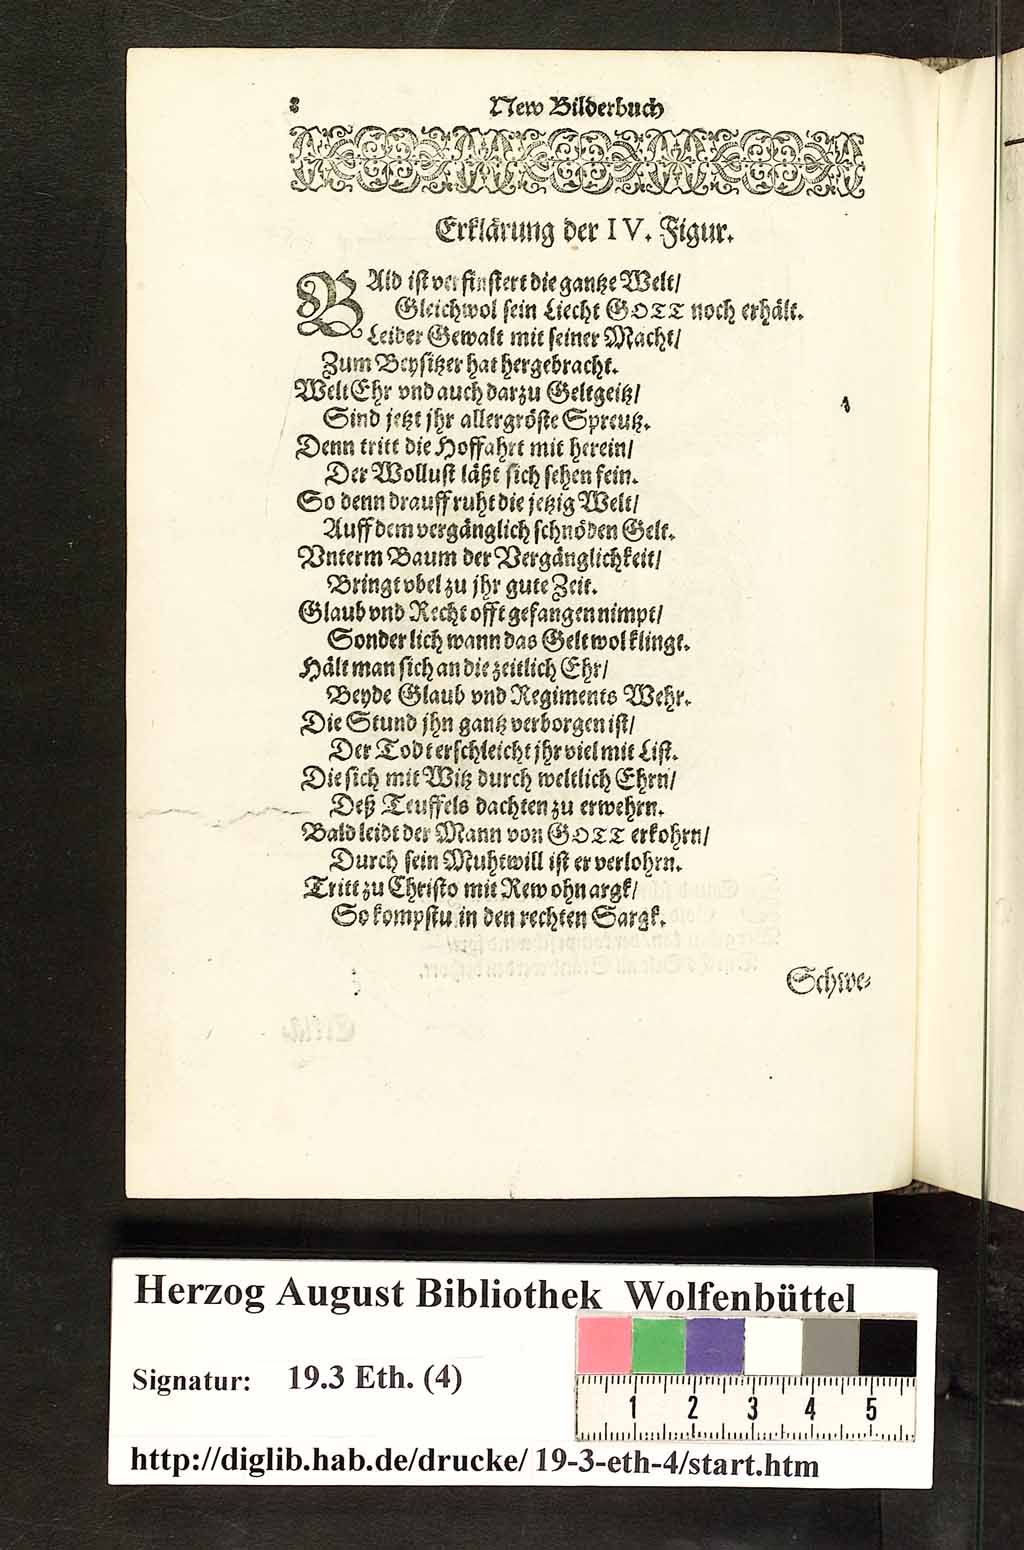 8 New Bilderbuch
Erklärung der IV. Figur.
BAld ist verfinstert die gantze Welt/
Gleichwol sein Liecht GOTT noch erhält.
Leider Gewalt mit seiner Macht/
Zum Beysitzer hat hergebracht.
Welt Ehr vnd auch darzu Geltgeitz/
Sind jetzt jhr allergröste Spreutz.
Denn tritt die Hoffahrt mit herein/
Der Wollust läßt sich sehen fein.
So denn drauff ruht die jetzig Welt/
Auff dem vergänglich schnöden Gelt.
Vnterm Baum der Vergänglichkeit/
Bringt vbel zu jhr gute Zeit.
Glaub vnd Recht offt gefangen nimpt/
Sonderlich wann das Gelt wol klingt.
Hält man sich an die zeitlich Ehr/
Beyde Glaub vnd Regiments Wehr.
Die Stund jhn gantz verborgen ist/
Der Todt erschleicht jhr viel mit List.
Die sich mit Witz durch weltlich Ehrn/
Deß Teuffels dachten zu erwehrn.
Bald leidt der Mann von GOTT erkohrn/
Durch sein Muhtwill ist er verlohrn.
Tritt zu Christo mit Rew ohn argk/
So kompstu in den rechten Sargk.
Schwe-
Herzog August Bibliothek Wolfenbüttel
Signatur: 19.3 Eth. (4)
1 2 3 4 5
http://diglib.hab.de/drucke/ 19-3-eth-4/start.htm